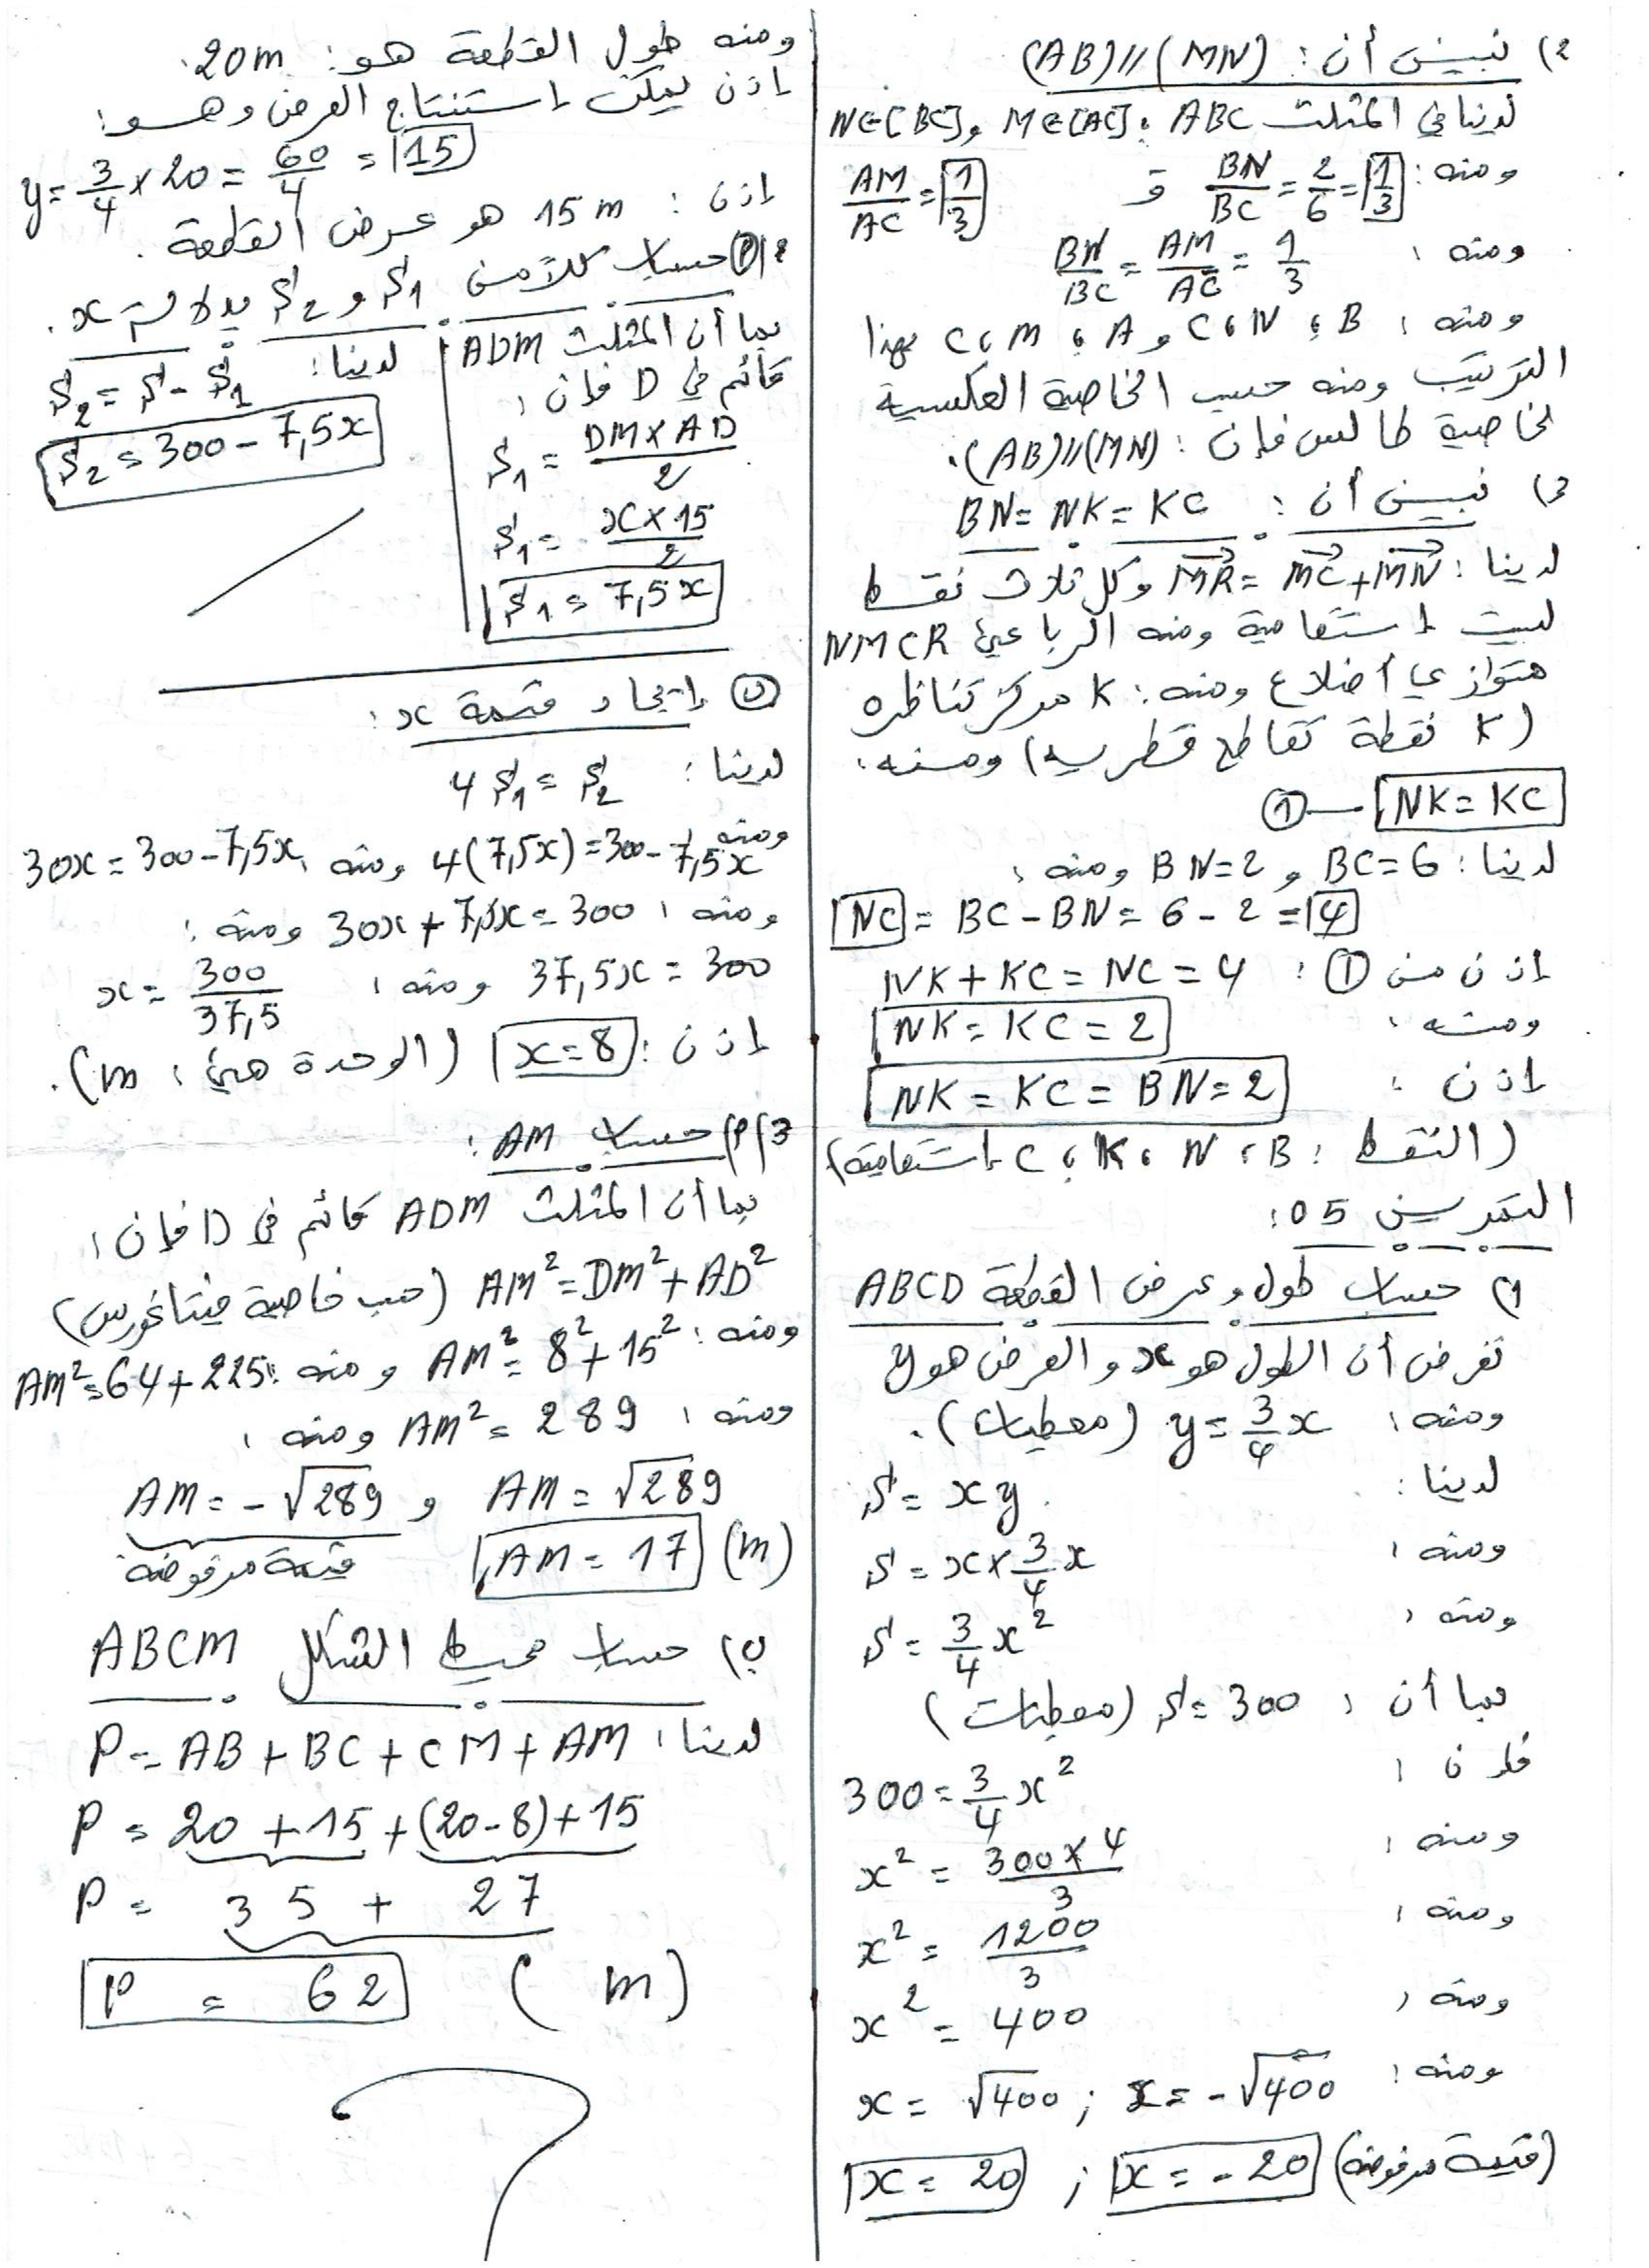 2) نبين أن : (AB)//(MN)
لدينا في المثلث ABC : M∈[AC] و N∈[BC]
ومنه : BN/BC = 2/6 = 1/3 و AM/AC = 1/3
ومنه : BN/BC = AM/AC = 1/3
ومنه : B ، N ، C و A ، M ، C بهذا
الترتيب ومنه حسب الخاصية العكسية
لخاصية طالس فإن : (AB)//(MN).
3) نبين أن : BN = NK = KC
لدينا : MR⃗ = MC⃗ + MN⃗ وكل ثلاث نقط
ليست إستقامية ومنه الرباعي NMCR
متوازي أضلاع ومنه : K مركز تناظره
(K نقطة تقاطع قطريه) ومنه :
NK = KC — ①
لدينا : BC = 6 و BN = 2 ومنه :
NC = BC - BN = 6 - 2 = 4
إذن من ① : NK + KC = NC = 4
ومنه : NK = KC = 2
إذن : NK = KC = BN = 2
(النقط : B ، N ، K ، C إستقامية)
التمرين 05 :
1) حساب طول وعرض القطعة ABCD
نفرض أن الطول هو x والعرض هو y
ومنه : y = 3/4 x (معطيات).
لدينا : S = xy
ومنه : S = x × 3/4 x
ومنه : S = 3/4 x²
بما أن : S = 300 (معطيات)
فإن : 300 = 3/4 x²
ومنه : x² = 300×4/3
ومنه : x² = 1200/3
ومنه : x² = 400
ومنه : x = √400 ; x = -√400
x = 20 ; x = -20 (قيمة مرفوضة)
ومنه طول القطعة هو : 20m.
إذن يمكن إستنتاج العرض وهو :
y = 3/4 × 20 = 60/4 = 15
إذن : 15 m هو عرض القطعة .
2) أ) حساب كلا من S₁ و S₂ بدلالة x .
بما أن المثلث ADM
قائم في D فإن :
S₁ = DM×AD/2
S₁ = x×15/2
S₁ = 7,5x
لدينا :
S₂ = S - S₁
S₂ = 300 - 7,5x
ب) إيجاد قيمة x :
لدينا : 4S₁ = S₂
ومنه 4(7,5x) = 300 - 7,5x ومنه : 30x = 300 - 7,5x
ومنه : 30x + 7,5x = 300 ومنه :
37,5x = 300 ومنه : x = 300/37,5
إذن : x = 8 (الوحدة هي : m).
3) أ) حساب AM :
بما أن المثلث ADM قائم في D فإن :
AM² = DM² + AD² (حسب خاصية فيتاغورس)
ومنه : AM² = 8² + 15² ومنه : AM² = 64 + 225
ومنه : AM² = 289 ومنه :
AM = √289 و AM = -√289
AM = 17 (m) قيمة مرفوضة
ب) حساب محيط الشكل ABCM
لدينا : P = AB + BC + CM + AM
P = 20 + 15 + (20 - 8) + 15
P = 35 + 27
P = 62 (m)